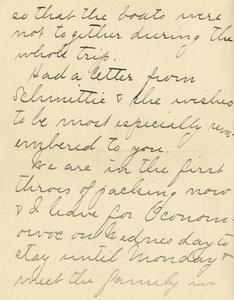 so that the boats were
not together during the
whole trip.
Had a letter from
Schmittie & she wishes
to be most especially rem-
embered to you.
We are in the first
throes of packing now
& I leave for Oconom-
owoc on Wednesday to
stay until Monday &
meet the family in